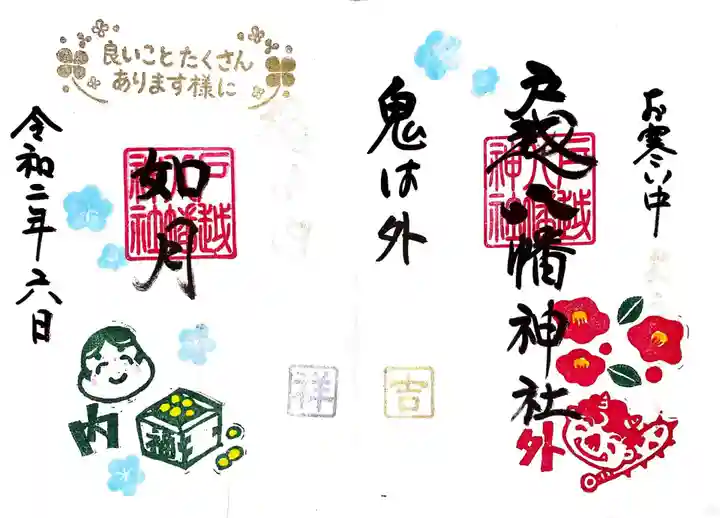 お寒い中
戸越八幡神社
戸越八幡神社
外
鬼は外
吉
祥
良いことたくさん
あります様に
如月
戸越八幡神社
内
福
令和二年二六日